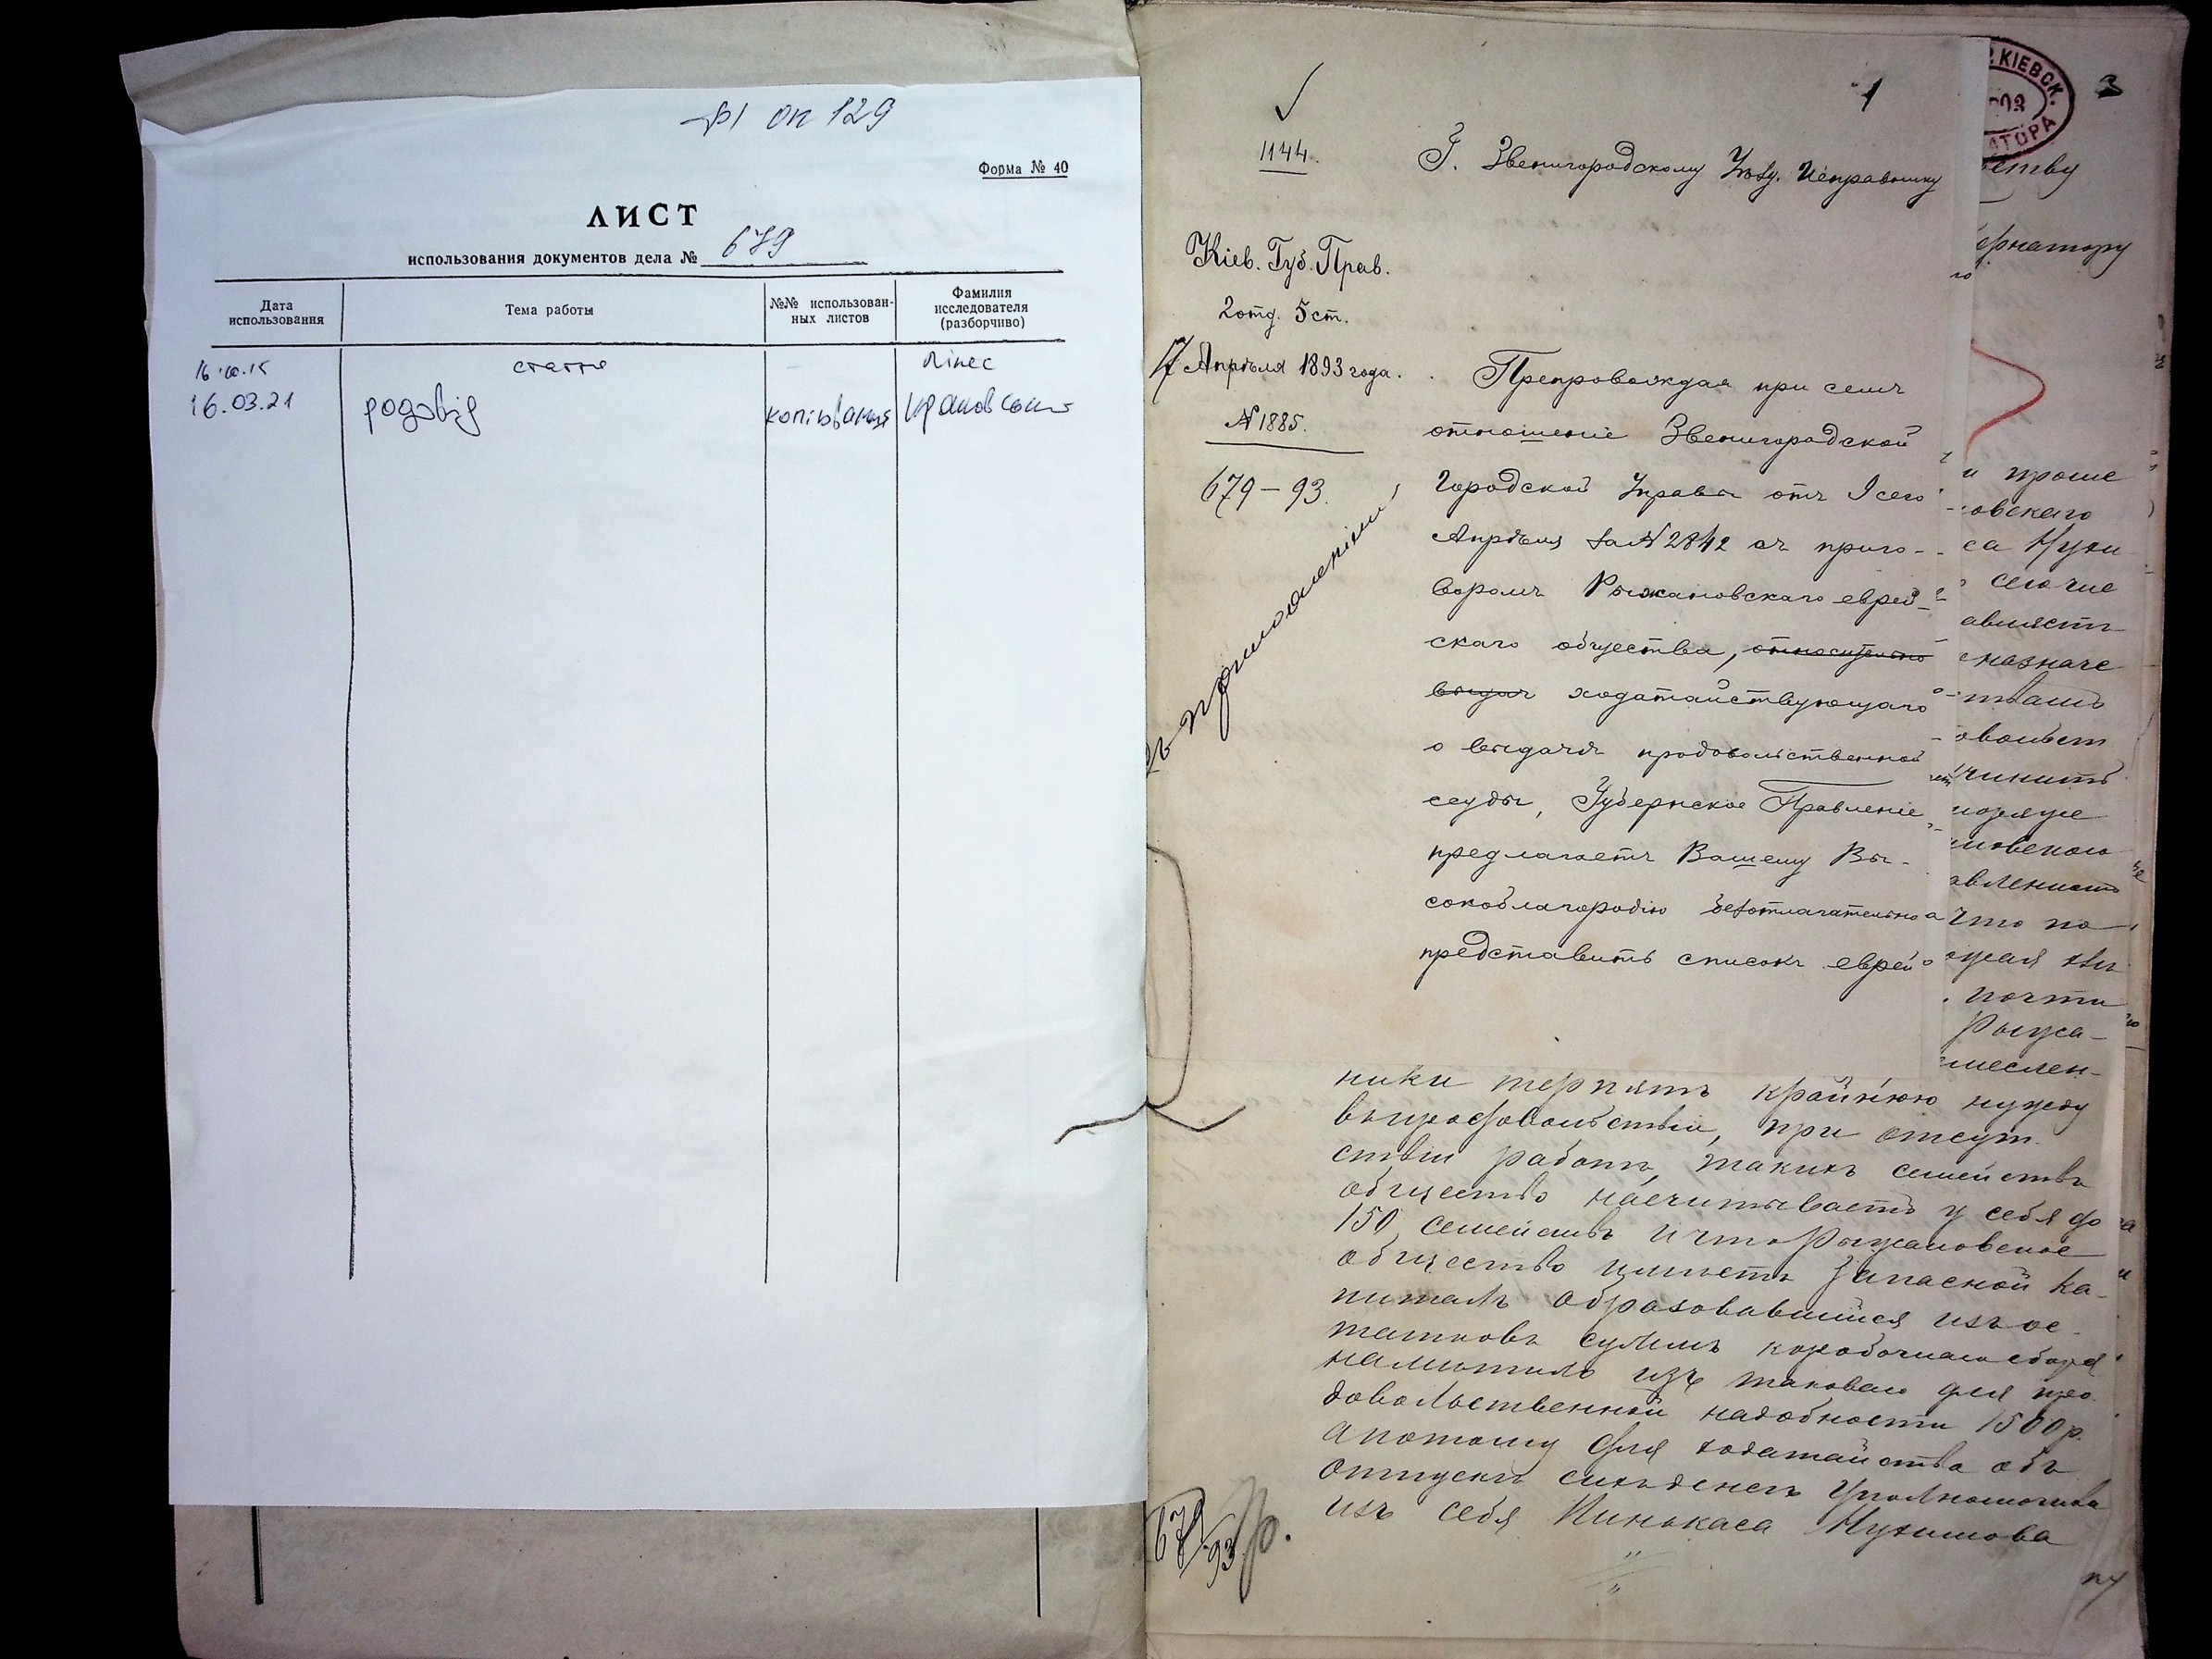 ф1 оп 129
Форма № 40
ЛИСТ
использования документов дела № 679
Дата использования
Тема работы
№№ использован-
ных листов
Фамилия исследователя (разборчиво)
статтs
16.03.21 родовід копіювання
1
3
КІЕВСК.
1144.
Г. Звенигородскому Уѣзд. Исправнику
Кіев. Губ. Прав.
2 отд. 5 ст.
17 Апрѣля 1893 года.
№ 1885.
679 – 93.
съ приложеніемъ
Препровождая при семъ
отношеніе Звенигородской
Городской Управы отъ 9 сего
Апрѣля за № 2842 съ приго-
воромъ Рыжановскаго еврей-
скаго общества, относительно
выдачи ходатайствующаго
о выдачѣ продовольственной
ссуды, Губернское Правленіе
предлагаетъ Вашему Вы-
сокоблагородію безотлагательно
представить списокъ еврей
ству
ернатору
и проше
овскаго
са Нухи
назначе
чинить
что по
почти
Рыжа-
меслен-
ники терпятъ крайнюю нужду
въ продовольствіи, при отсут
ствіи работъ, такихъ семействъ
общество насчитываетъ у себя до
150 семействъ и что Рыжановское
общество имѣетъ запасной ка-
питалъ образовавшійся изъ ос
татковъ суммъ коробочнаго сбора
намѣтило изъ таковаго для про
довольственной надобности 1500 р.
а потому для ходатайства объ
отпускѣ сихъ денегъ уполномочила
изъ себя Пинькаса Нухимова
679
93